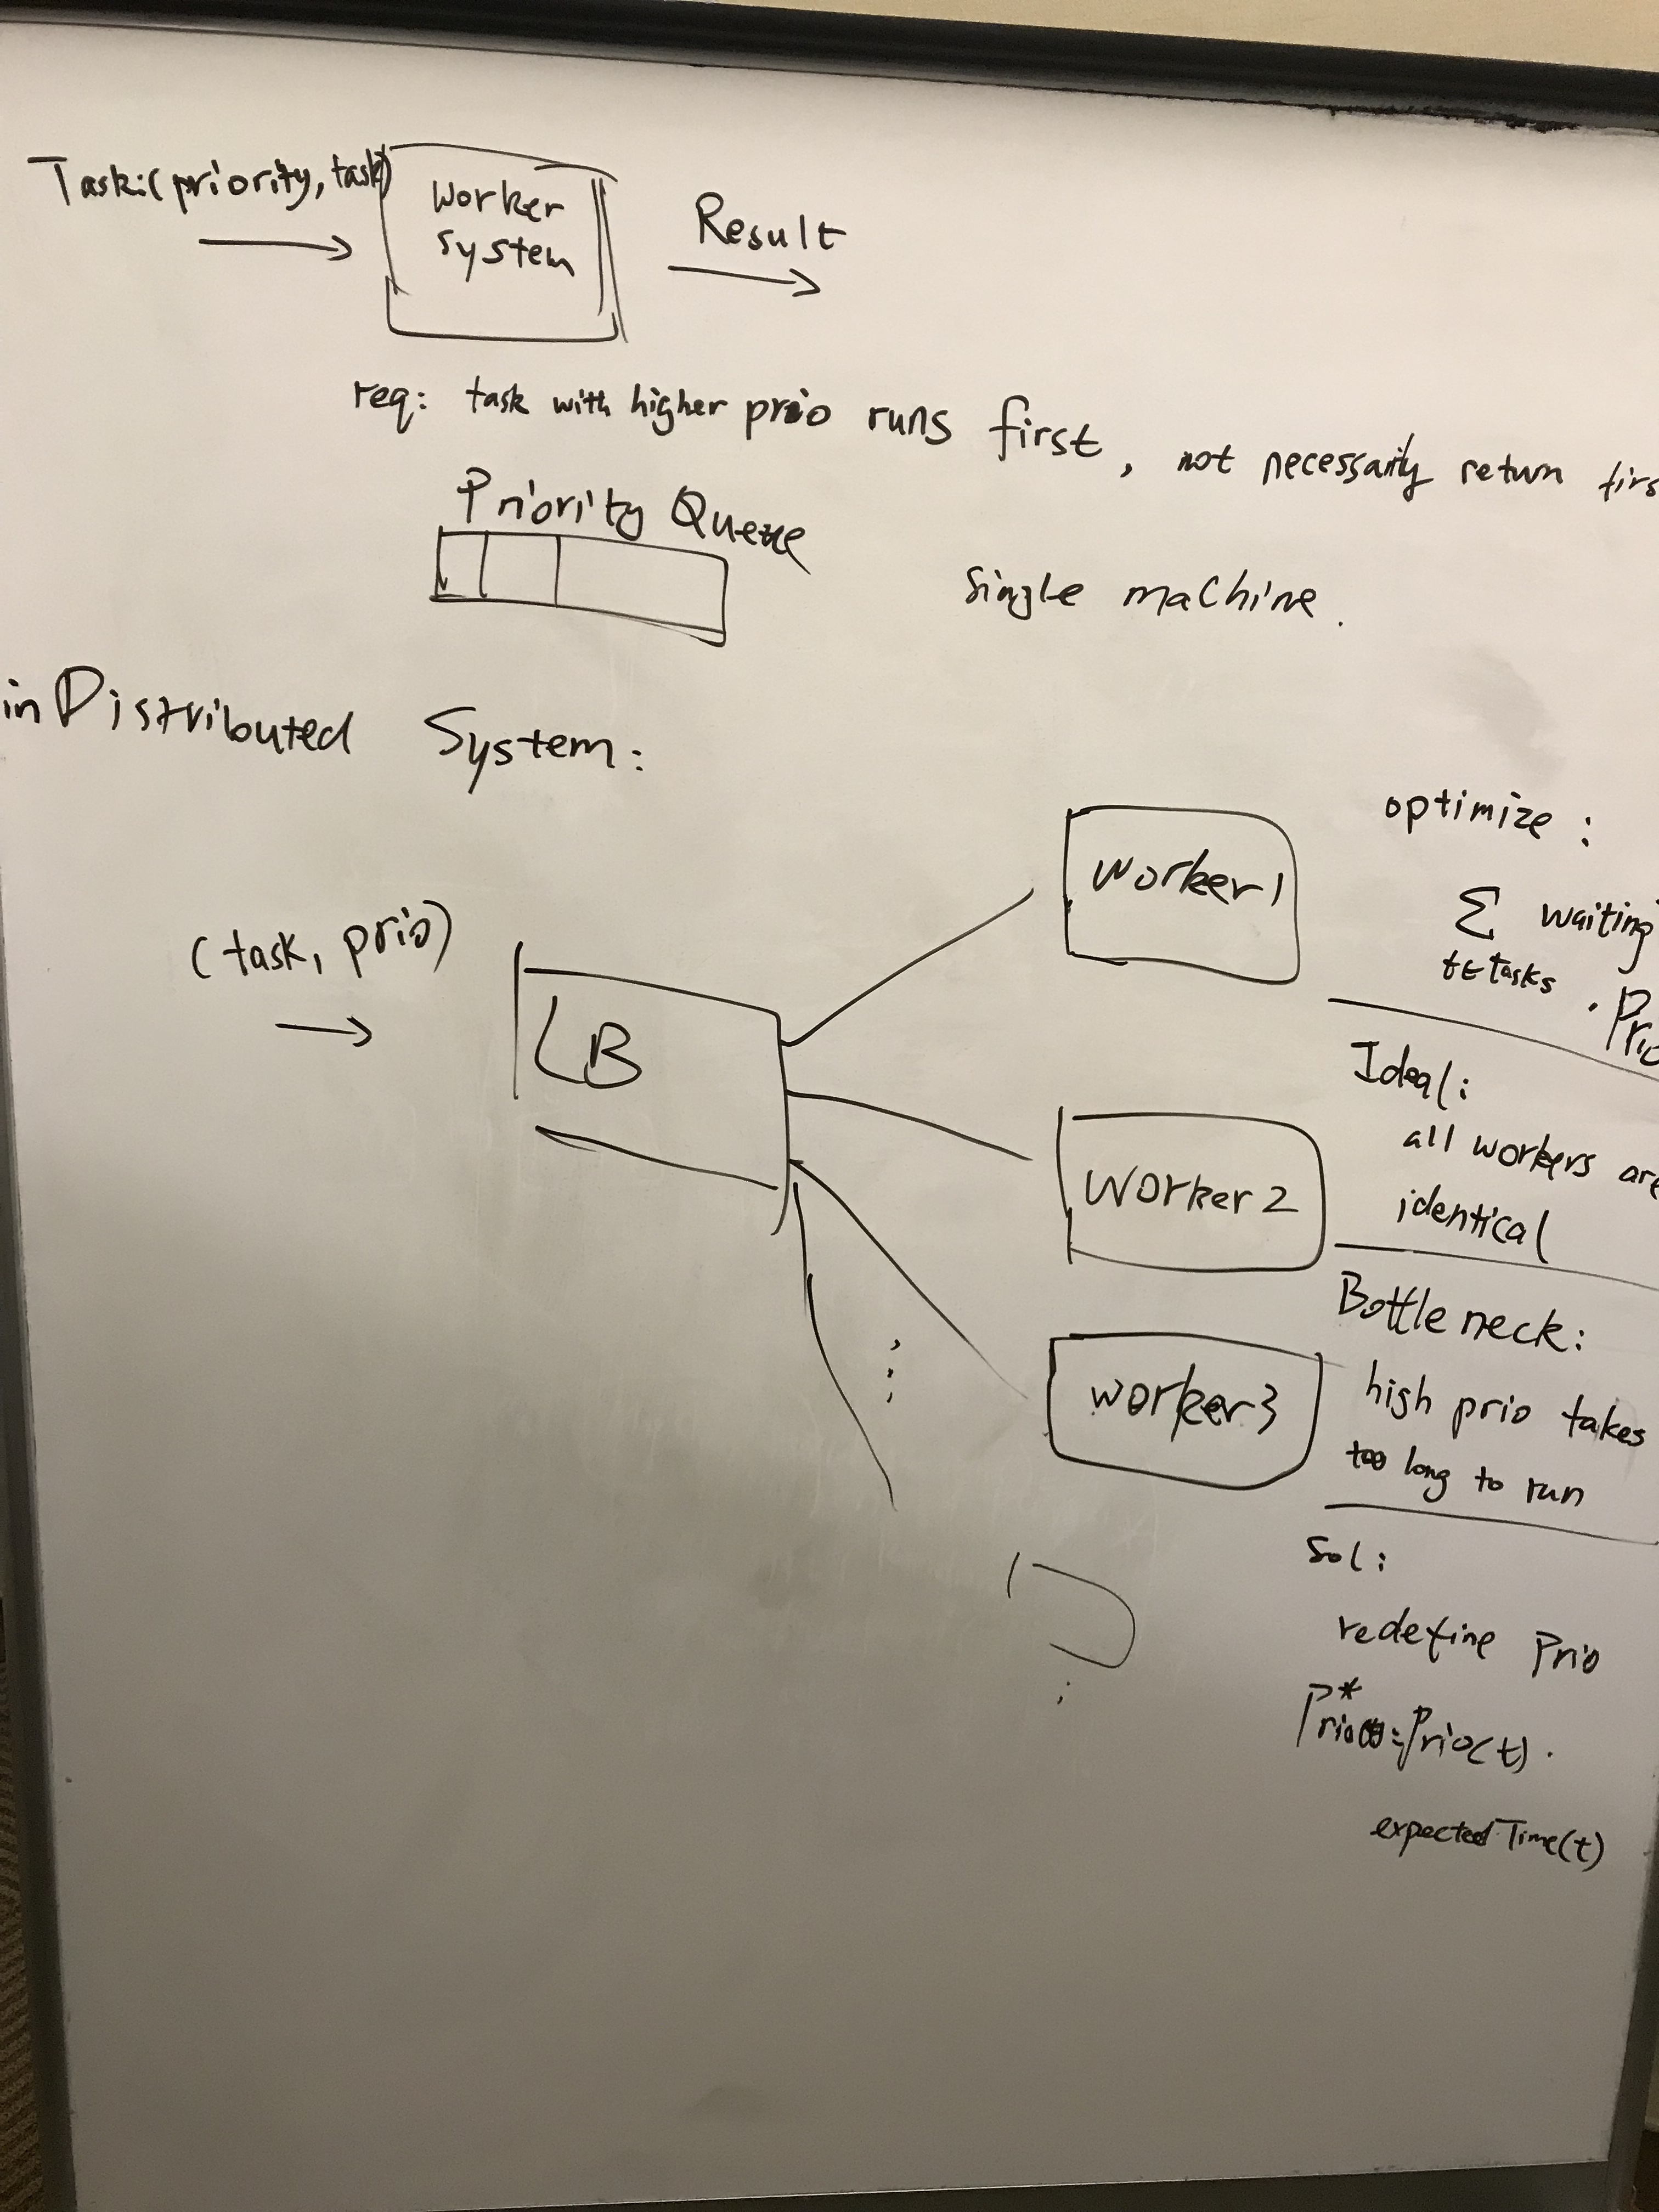 Task:(priority, task)
worker
system
Result
req: task with higher prio runs first, not necessarily return firs
Priority Queue
Single machine.
in Distributed System:
(task, prio)
LB
worker1
worker2
worker3
optimize:
Σ waiting
t∈tasks
. Prio
Ideal:
all workers are
identical
Bottleneck:
high prio takes
too long to run
Sol:
redefine Prio
Prio(t).
expectedTime(t)